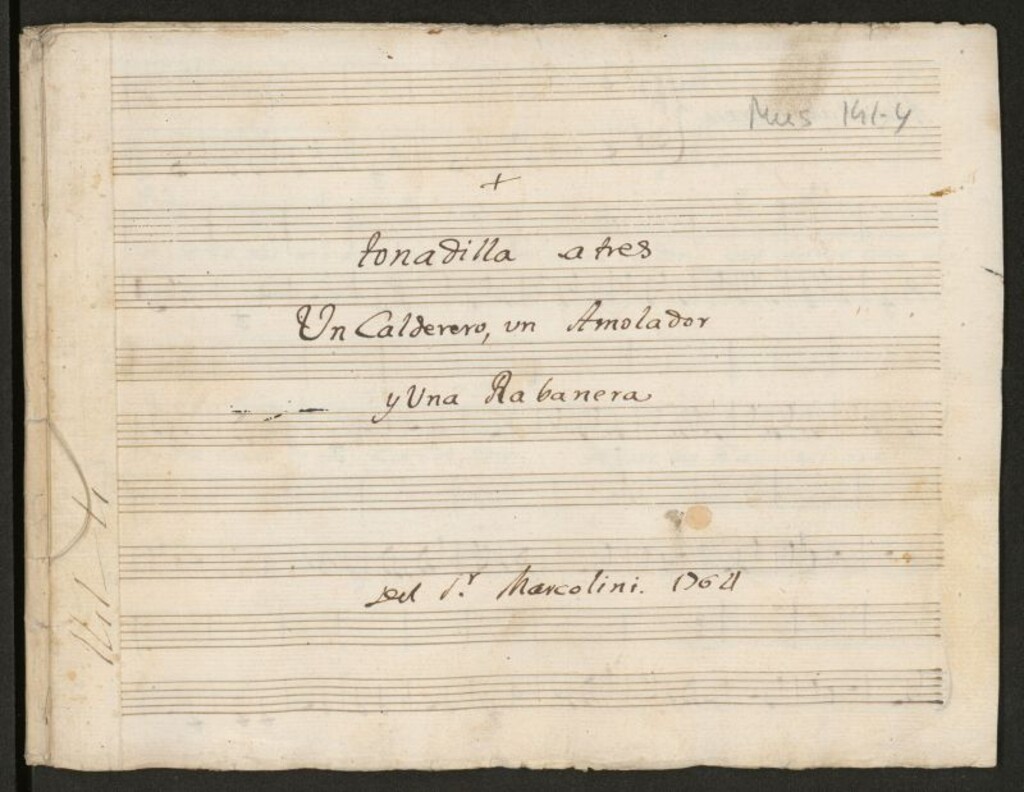 Mus 191-4
+
tonadilla a tres
Un Calderero, un Amolador
y Una Rabanera
Del Sr. Marcolini. 1764